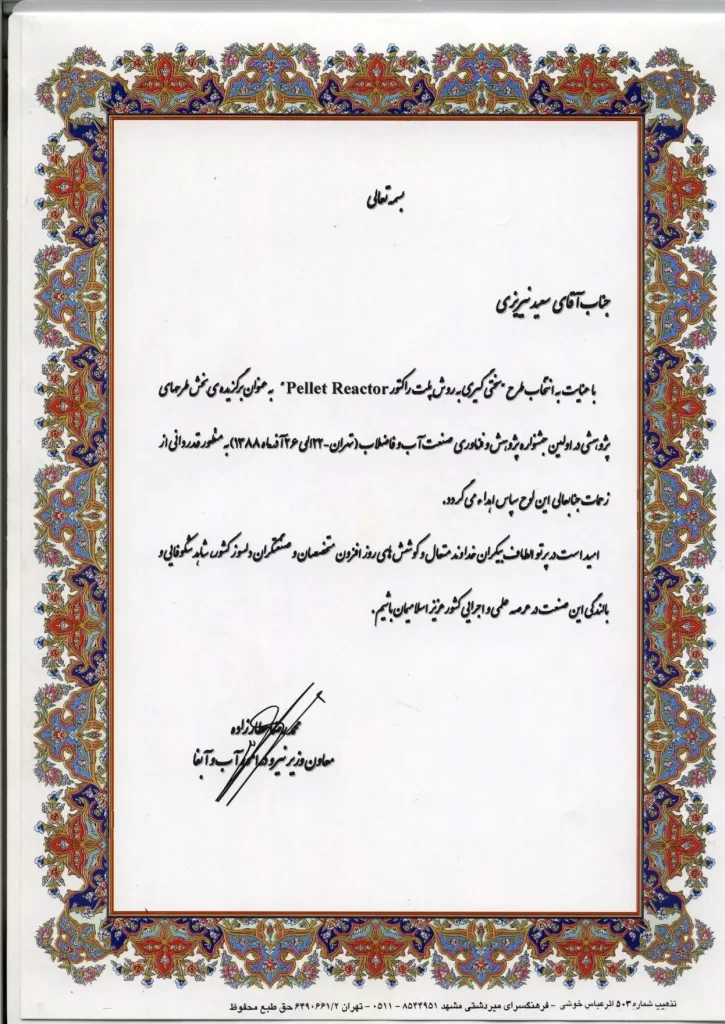 بسمه تعالی
جناب آقای سعید نیریزی
با عنایت به انتخاب طرح "سختی گیری به روش پلت راکتور Pellet Reactor" به عنوان برگزیده ی بخش طرحهای
پژوهشی در اولین جشنواره پژوهش و فناوری صنعت آب و فاضلاب (تهران-۲۲الی ۲۶ آذرماه ۱۳۸۸) به منظور قدردانی از
زحمات جنابعالی این لوح سپاس اهداء می گردد.
امید است در پرتو الطاف بیکران خداوند متعال و کوشش های روز افزون متخصصان و صنعتگران دلسوز کشور، شاهد شکوفایی و
بالندگی این صنعت در عرصه علمی و اجرایی کشور عزیز اسلامیمان باشیم.
محمدرضا عطارزاده
معاون وزیر نیرو در امور آب و آبفا
تذهیب شماره ۵۰۳ اثر عباس خوشی - فرهنگسرای میردشتی مشهد ۸۵۴۴۹۵۱ - ۰۵۱۱ - تهران ۶۴۹۰۶۶۱/۲ حق طبع محفوظ